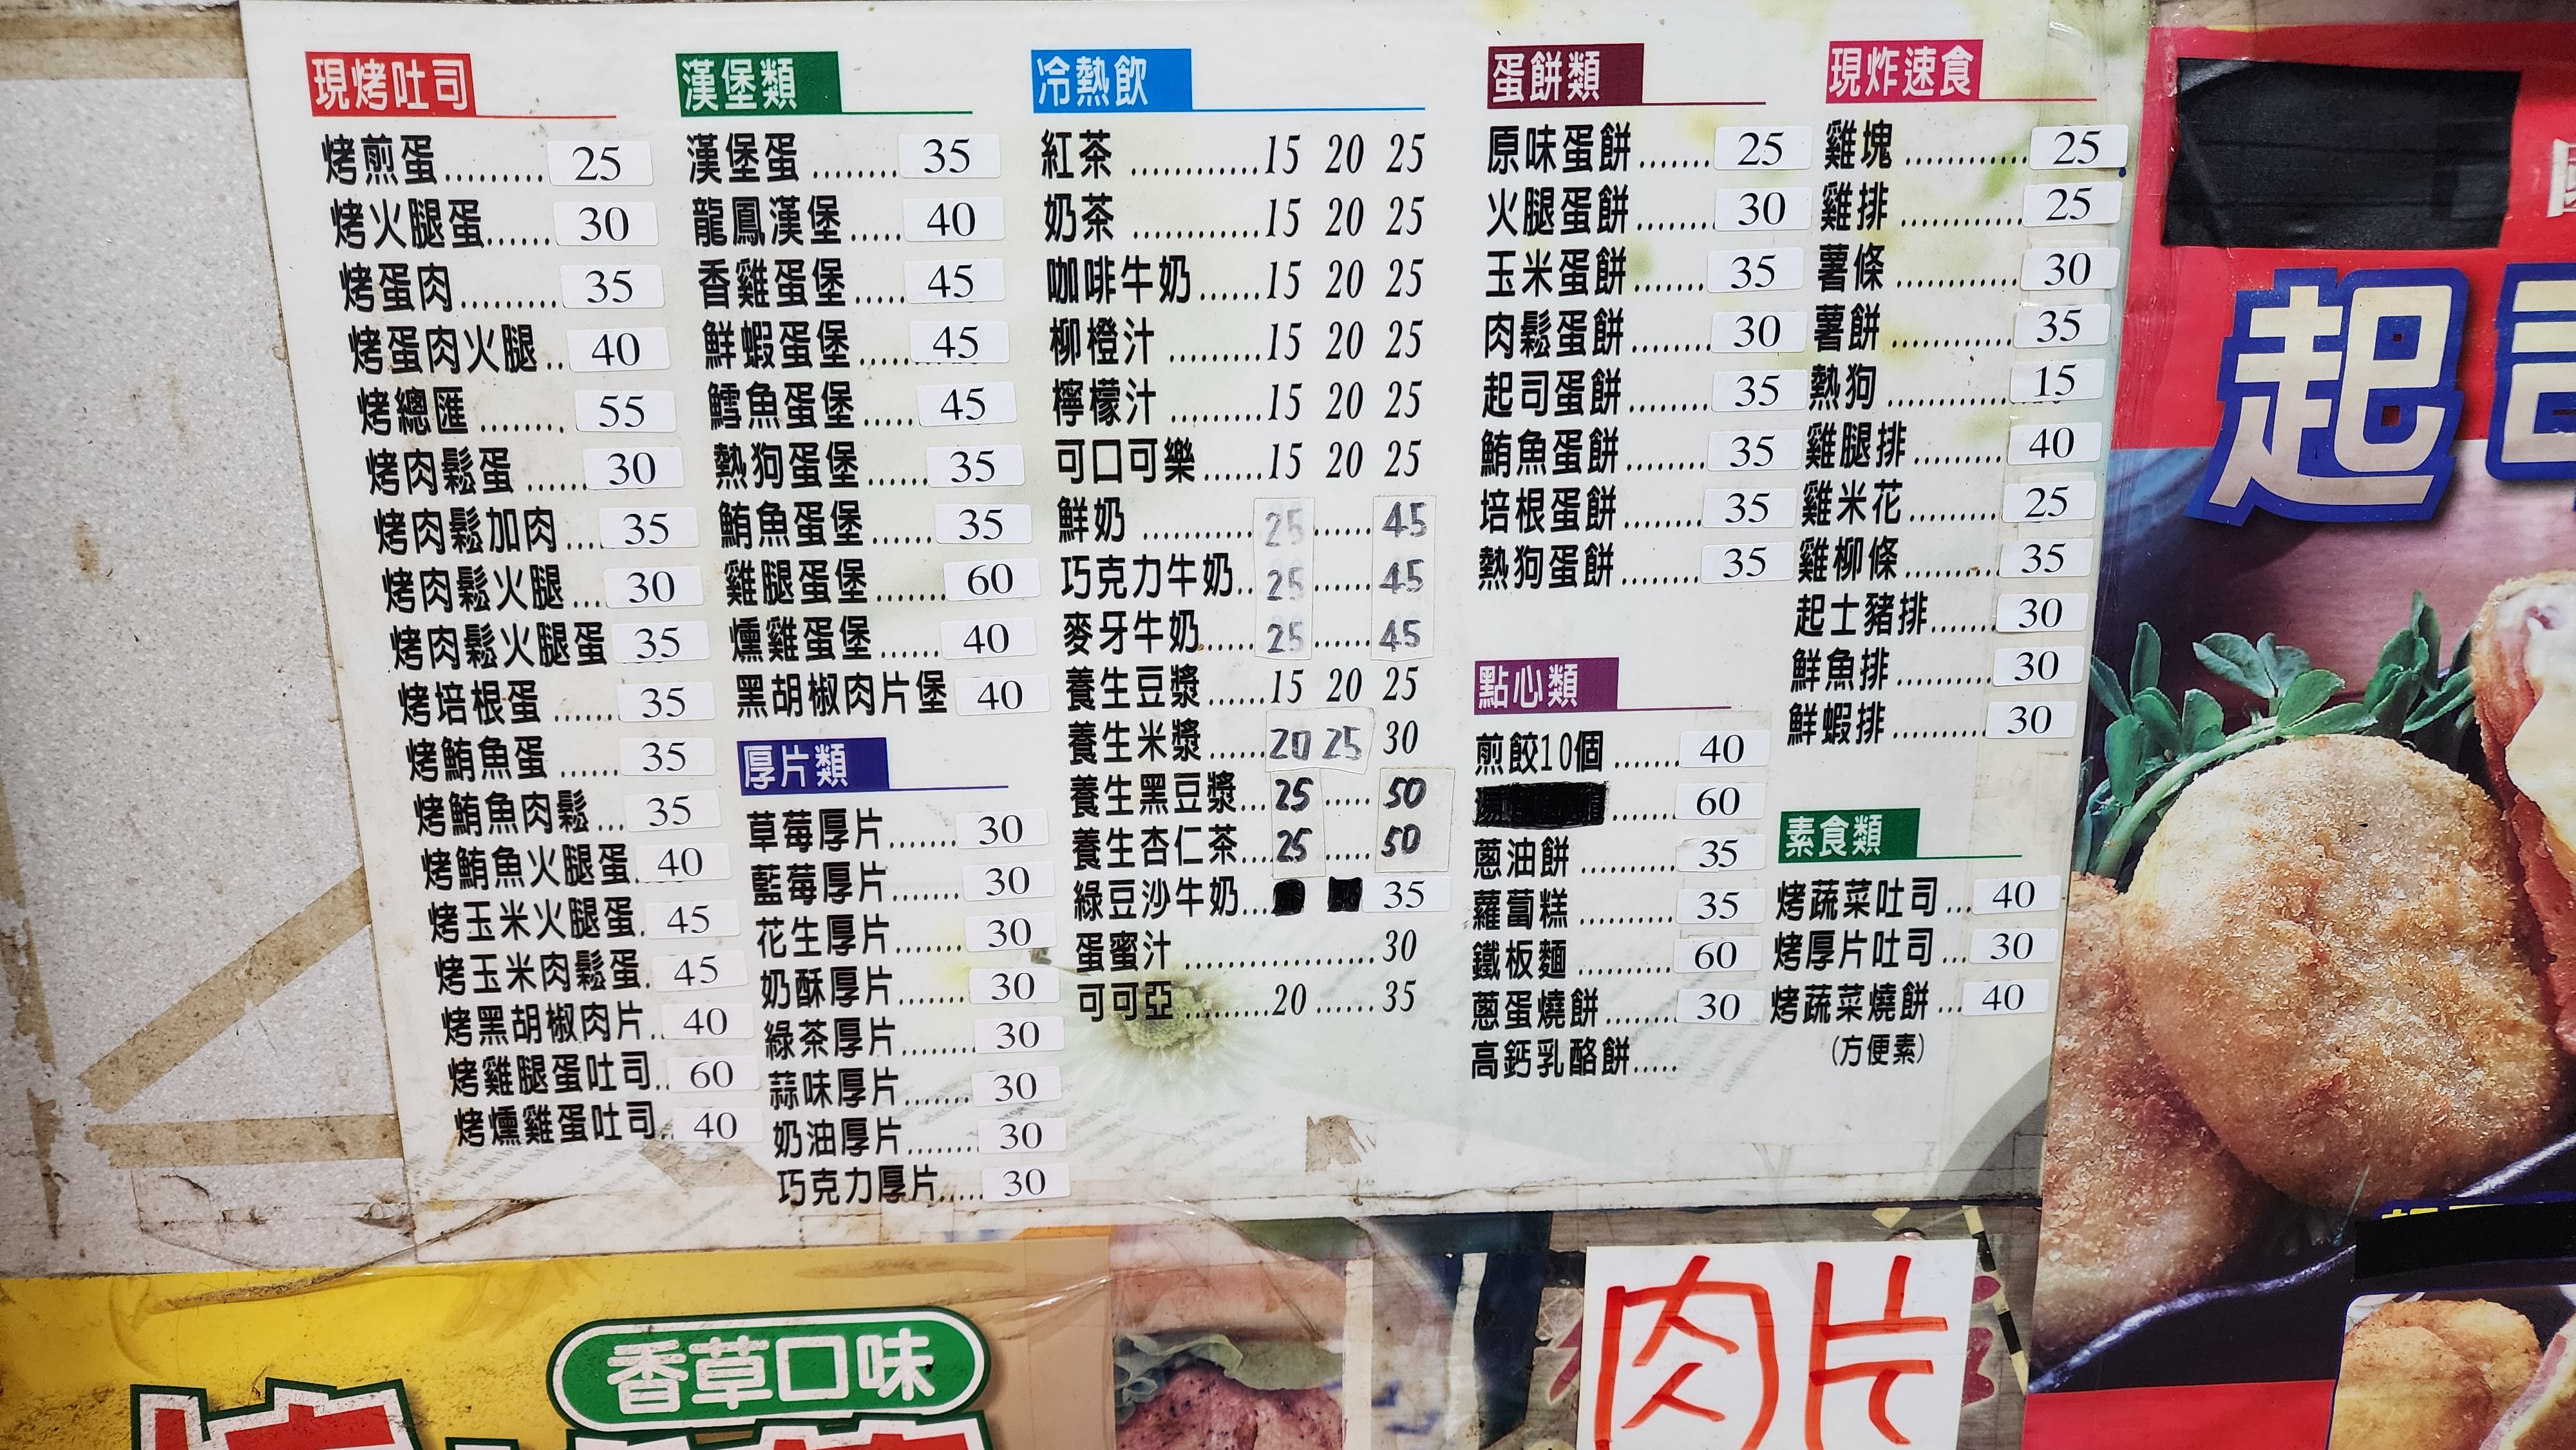 現烤吐司
烤煎蛋......... 25
烤火腿蛋...... 30
烤蛋肉......... 35
烤蛋肉火腿.. 40
烤總匯........ 55
烤肉鬆蛋 ...... 30
烤肉鬆加肉... 35
烤肉鬆火腿... 30
烤肉鬆火腿蛋 35
烤培根蛋 ...... 35
烤鮪魚蛋 ...... 35
烤鮪魚肉鬆... 35
烤鮪魚火腿蛋. 40
烤玉米火腿蛋. 45
烤玉米肉鬆蛋. 45
烤黑胡椒肉片.. 40
烤雞腿蛋吐司.. 60
烤燻雞蛋吐司.. 40
漢堡類
漢堡蛋 ........ 35
龍鳳漢堡..... 40
香雞蛋堡..... 45
鮮蝦蛋堡...... 45
鱈魚蛋堡...... 45
熱狗蛋堡...... 35
鮪魚蛋堡...... 35
雞腿蛋堡....... 60
燻雞蛋堡....... 40
黑胡椒肉片堡 40
厚片類
草莓厚片...... 30
藍莓厚片....... 30
花生厚片....... 30
奶酥厚片....... 30
綠茶厚片....... 30
蒜味厚片....... 30
奶油厚片....... 30
巧克力厚片.... 30
冷熱飲
紅茶 ............15 20 25
奶茶 ............15 20 25
咖啡牛奶......15 20 25
柳橙汁 .........15 20 25
檸檬汁 .........15 20 25
可口可樂......15 20 25
鮮奶 ............25......45
巧克力牛奶..25......45
麥牙牛奶......25......45
養生豆漿......15 20 25
養生米漿......20 25 30
養生黑豆漿...25.....50
養生杏仁茶...25.....50
綠豆沙牛奶... 35
蛋蜜汁 .................30
可可亞 .........20......35
蛋餅類
原味蛋餅....... 25
火腿蛋餅....... 30
玉米蛋餅....... 35
肉鬆蛋餅....... 30
起司蛋餅....... 35
鮪魚蛋餅....... 35
培根蛋餅....... 35
熱狗蛋餅....... 35
點心類
煎餃10個....... 40
........ 60
蔥油餅 ......... 35
蘿蔔糕 ......... 35
鐵板麵 ......... 60
蔥蛋燒餅....... 30
高鈣乳酪餅.....
現炸速食
雞塊 ............ 25
雞排 ............ 25
薯條 ............ 30
薯餅 ............ 35
熱狗 ............ 15
雞腿排......... 40
雞米花......... 25
雞柳條......... 35
起士豬排...... 30
鮮魚排......... 30
鮮蝦排......... 30
素食類
烤蔬菜吐司... 40
烤厚片吐司... 30
烤蔬菜燒餅... 40
(方便素)
起
香草口味
肉片